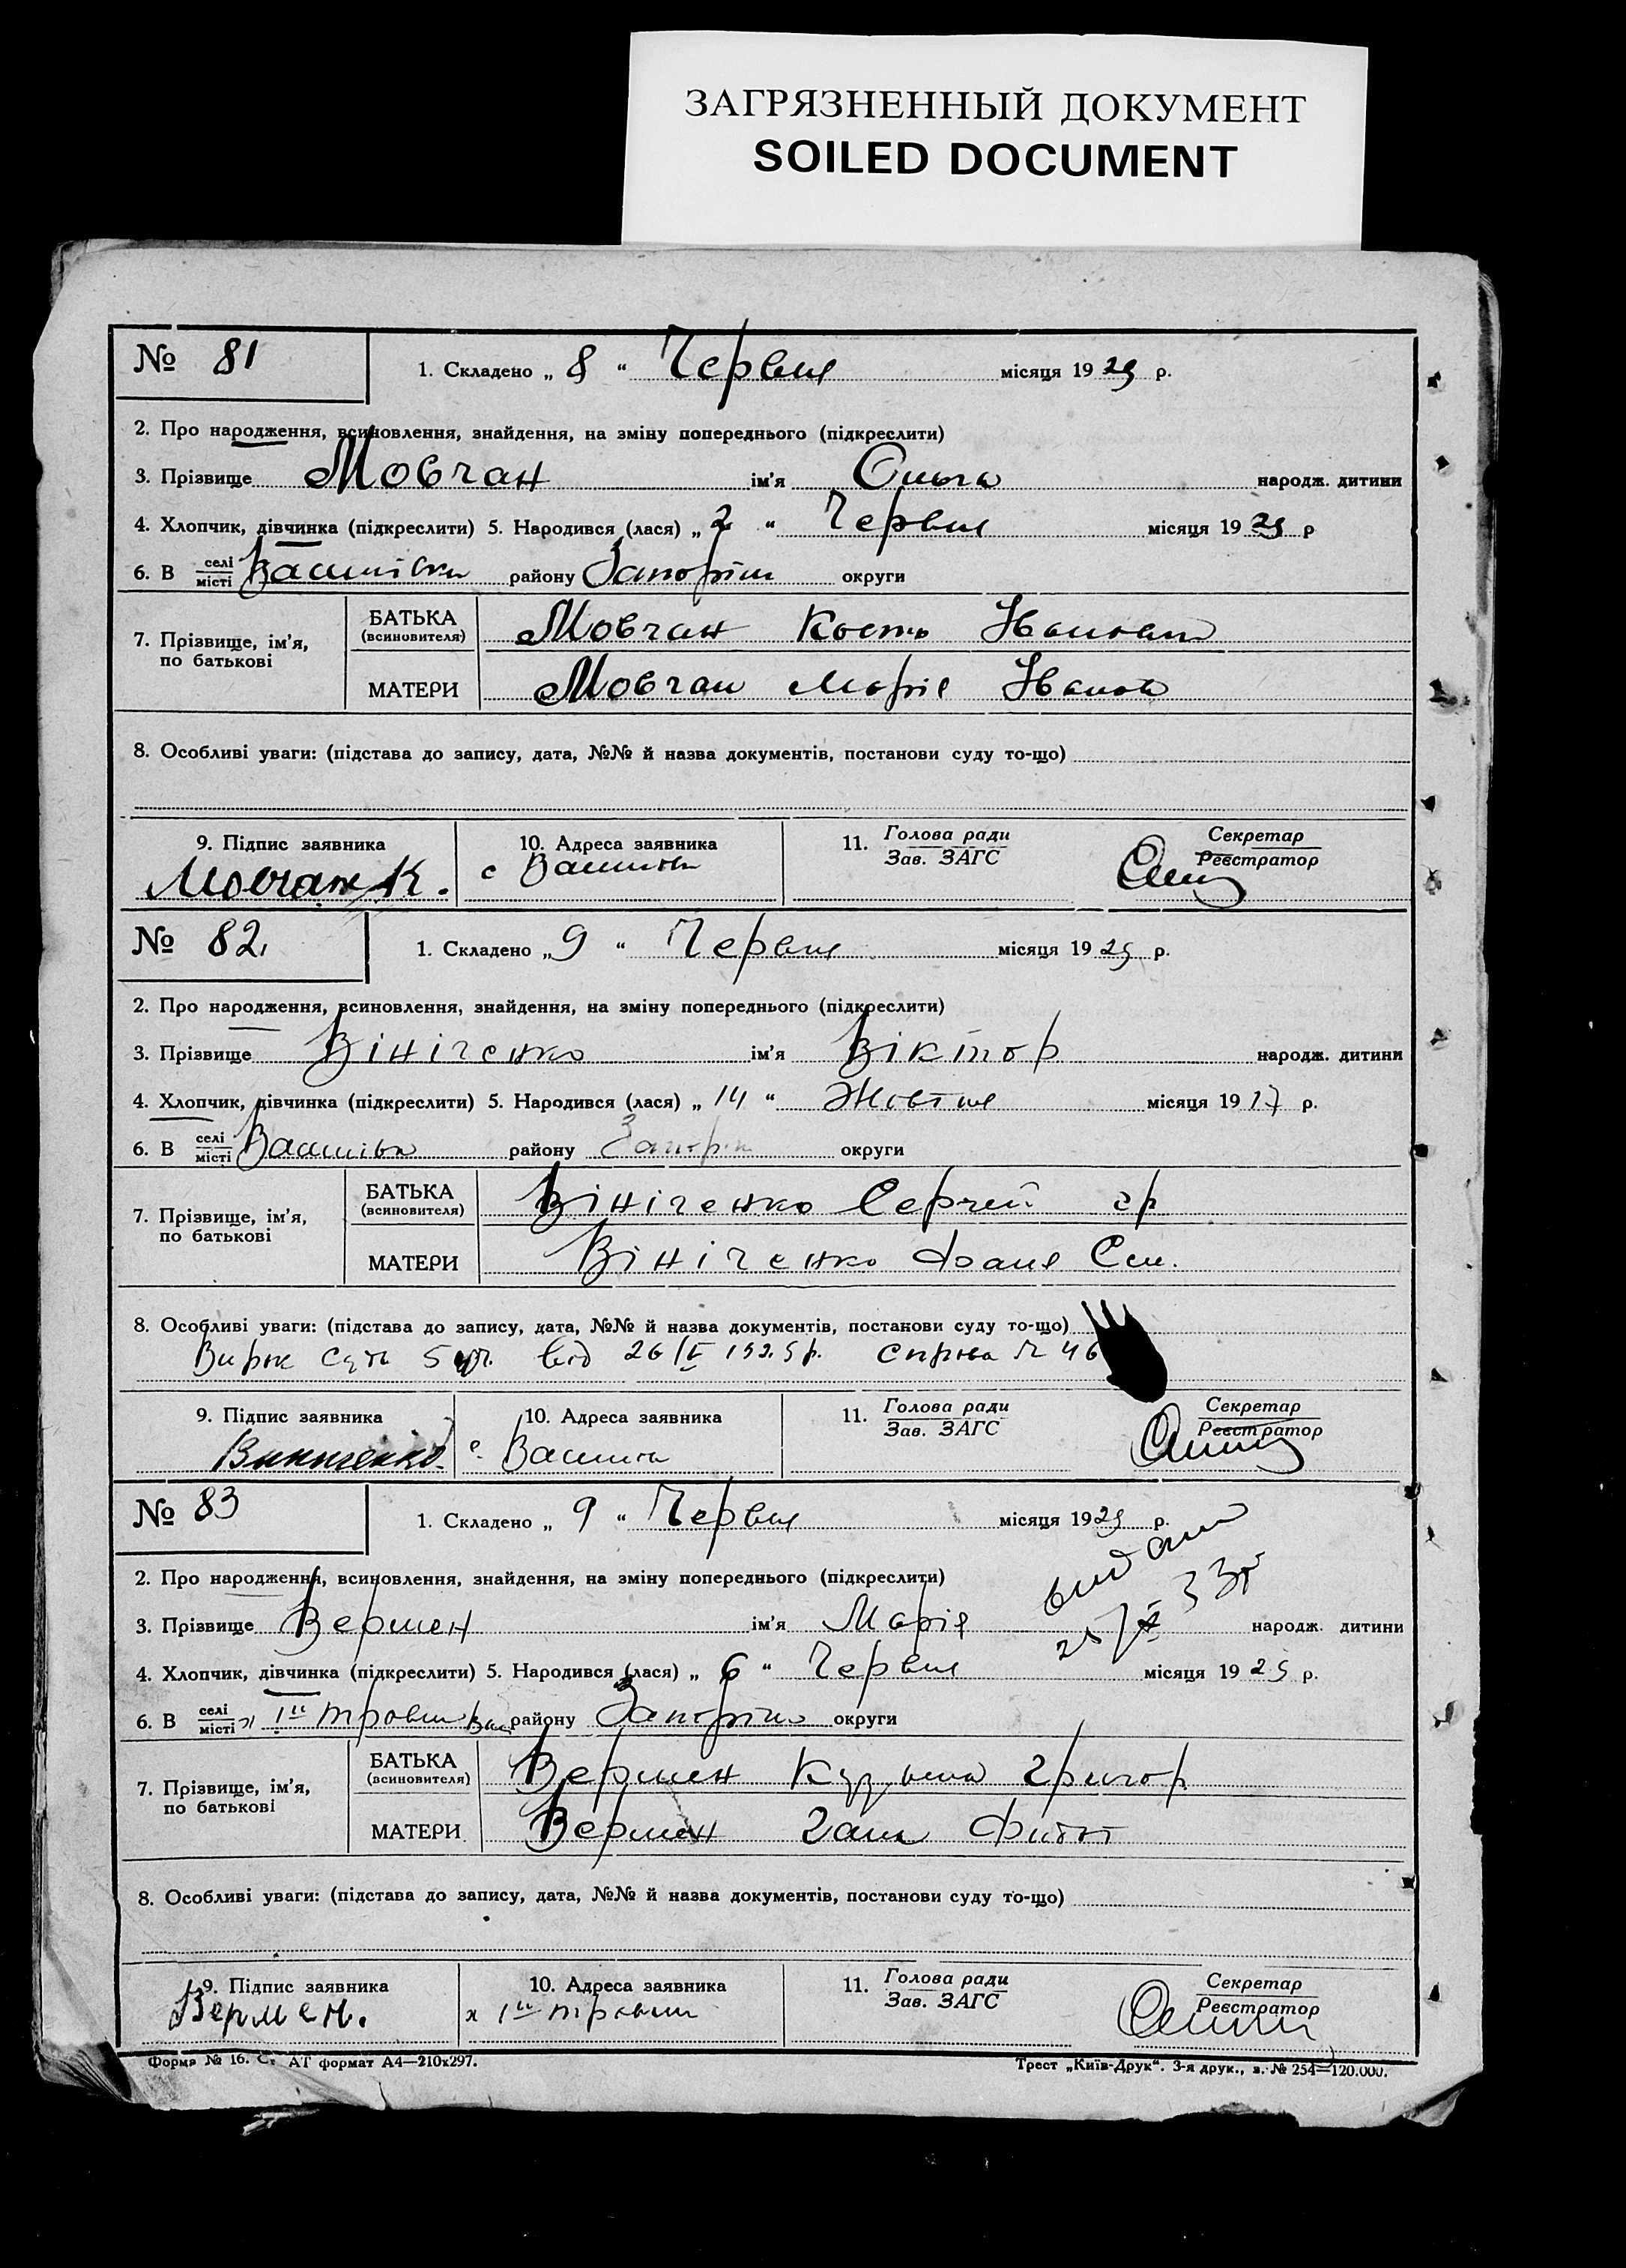 ЗАГРЯЗНЕННЫЙ ДОКУМЕНТ
SOILED DOCUMENT
№ 81
1. Складено „ 8 “ Червня місяця 1929 р.
2. Про народження, всиновлення, знайдення, на зміну попереднього (підкреслити)
3. Прізвище Мовчан ім'я Ольга народж. дитини
4. Хлопчик, дівчинка (підкреслити) 5. Народився (лася) „ 2 “ Червня місяця 1929 р
6. В селі місті району округи
7. Прізвище, ім'я, по батькові
БАТЬКА (всиновителя) Мовчан Кость Іванович
МАТЕРИ Мовчан Марія Іванов
8. Особливі уваги: (підстава до запису, дата, №№ й назва документів, постанови суду то-що)
9. Підпис заявника 10. Адреса заявника 11. Голова ради Зав. ЗАГС Секретар Реєстратор
Мовчан К. с
№ 82
1. Складено „ 9 “ Червня місяця 1929 р.
2. Про народження, всиновлення, знайдення, на зміну попереднього (підкреслити)
3. Прізвище Вініченко ім'я Віктор народж. дитини
4. Хлопчик, дівчинка (підкреслити) 5. Народився (лася) „ 14 “ Жовтня місяця 1917 р.
6. В селі місті району округи
7. Прізвище, ім'я, по батькові
БАТЬКА (всиновителя) Вініченко Сергей гр
МАТЕРИ Вініченко Сем.
8. Особливі уваги: (підстава до запису, дата, №№ й назва документів, постанови суду то-що)
Вирок від 26/V 1929 р. справа № 46
9. Підпис заявника 10. Адреса заявника 11. Голова ради Зав. ЗАГС Секретар Реєстратор
с.
№ 83
1. Складено „ 9 “ Червня місяця 1929 р.
2. Про народження, всиновлення, знайдення, на зміну попереднього (підкреслити)
3. Прізвище Вермен ім'я Марія народж. дитини
4. Хлопчик, дівчинка (підкреслити) 5. Народився (лася) „ 6 “ Червня місяця 1929 р.
6. В селі місті х 1го травня району округи
7. Прізвище, ім'я, по батькові
БАТЬКА (всиновителя) Вермен Кузьма Григор
МАТЕРИ Вермен
8. Особливі уваги: (підстава до запису, дата, №№ й назва документів, постанови суду то-що)
9. Підпис заявника 10. Адреса заявника 11. Голова ради Зав. ЗАГС Секретар Реєстратор
Вермен. х 1го травня
Форма № 16. Ст АТ формат А4—210х297.
Трест „Київ-Друк“. 3-я друк., з. № 254—120.000.